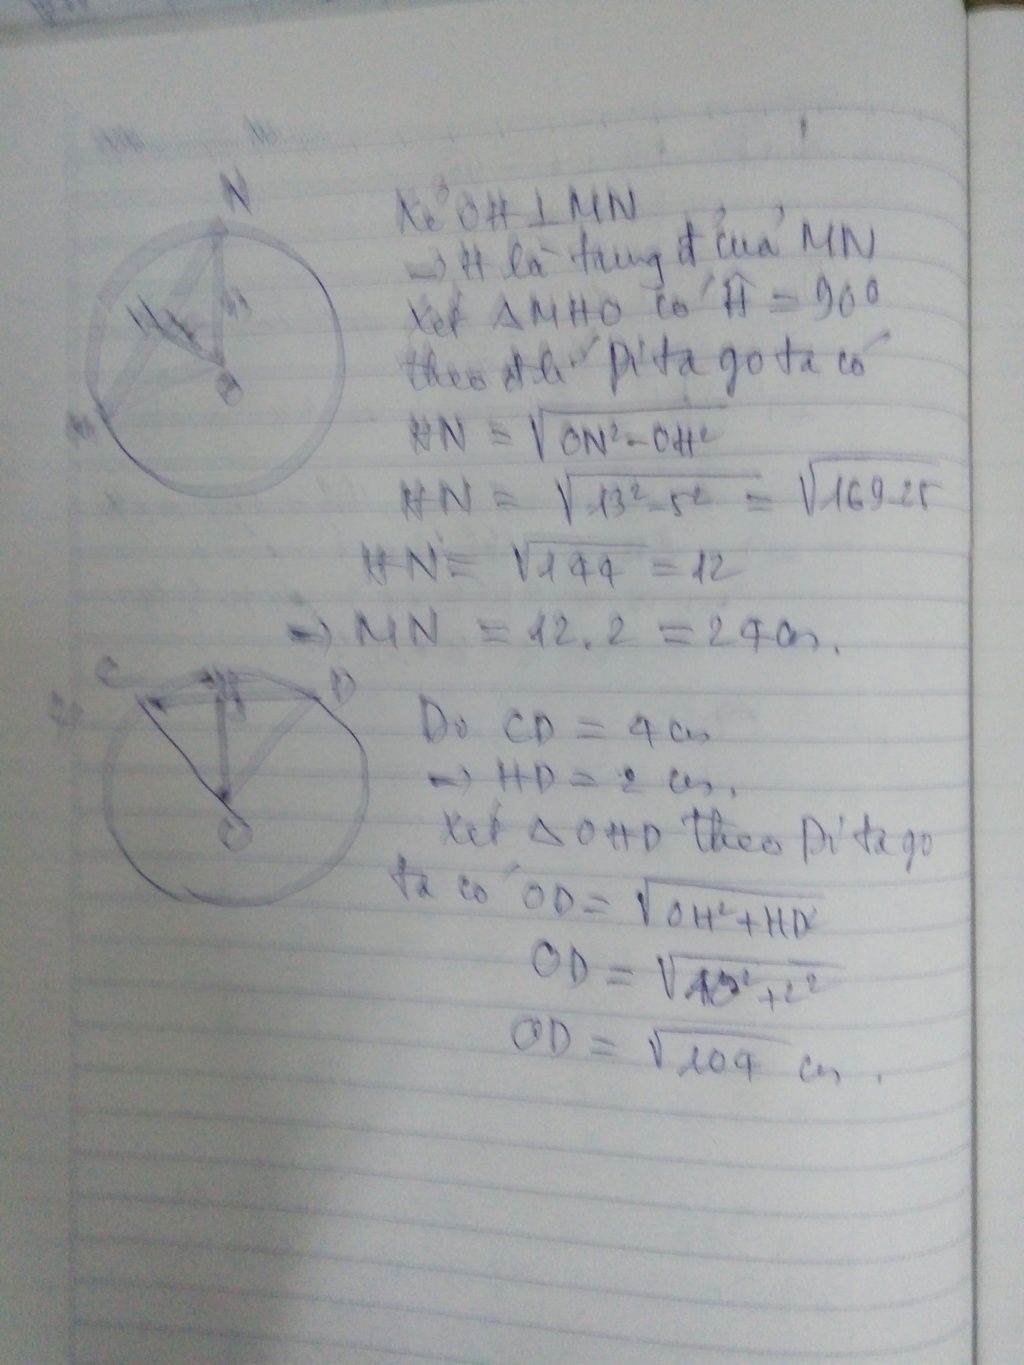 N
Kẻ OH ⊥ MN
→ H là trung đ của MN
Xét ΔMHO có Ĥ = 90⁰
theo đ lí Pi ta go ta có
H
O
HN = √(ON² - OH²)
HN = √(13² - 5²) = √(169 - 25)
HN = √144 = 12
→ MN = 12.2 = 24 cm.
C
D
Do CD = 4 cm
→ HD = 2 cm.
Xét ΔOHD theo Pi ta go
O
ta có OD = √(OH² + HD²)
OD = √(10² + 2²)
OD = √104 cm.